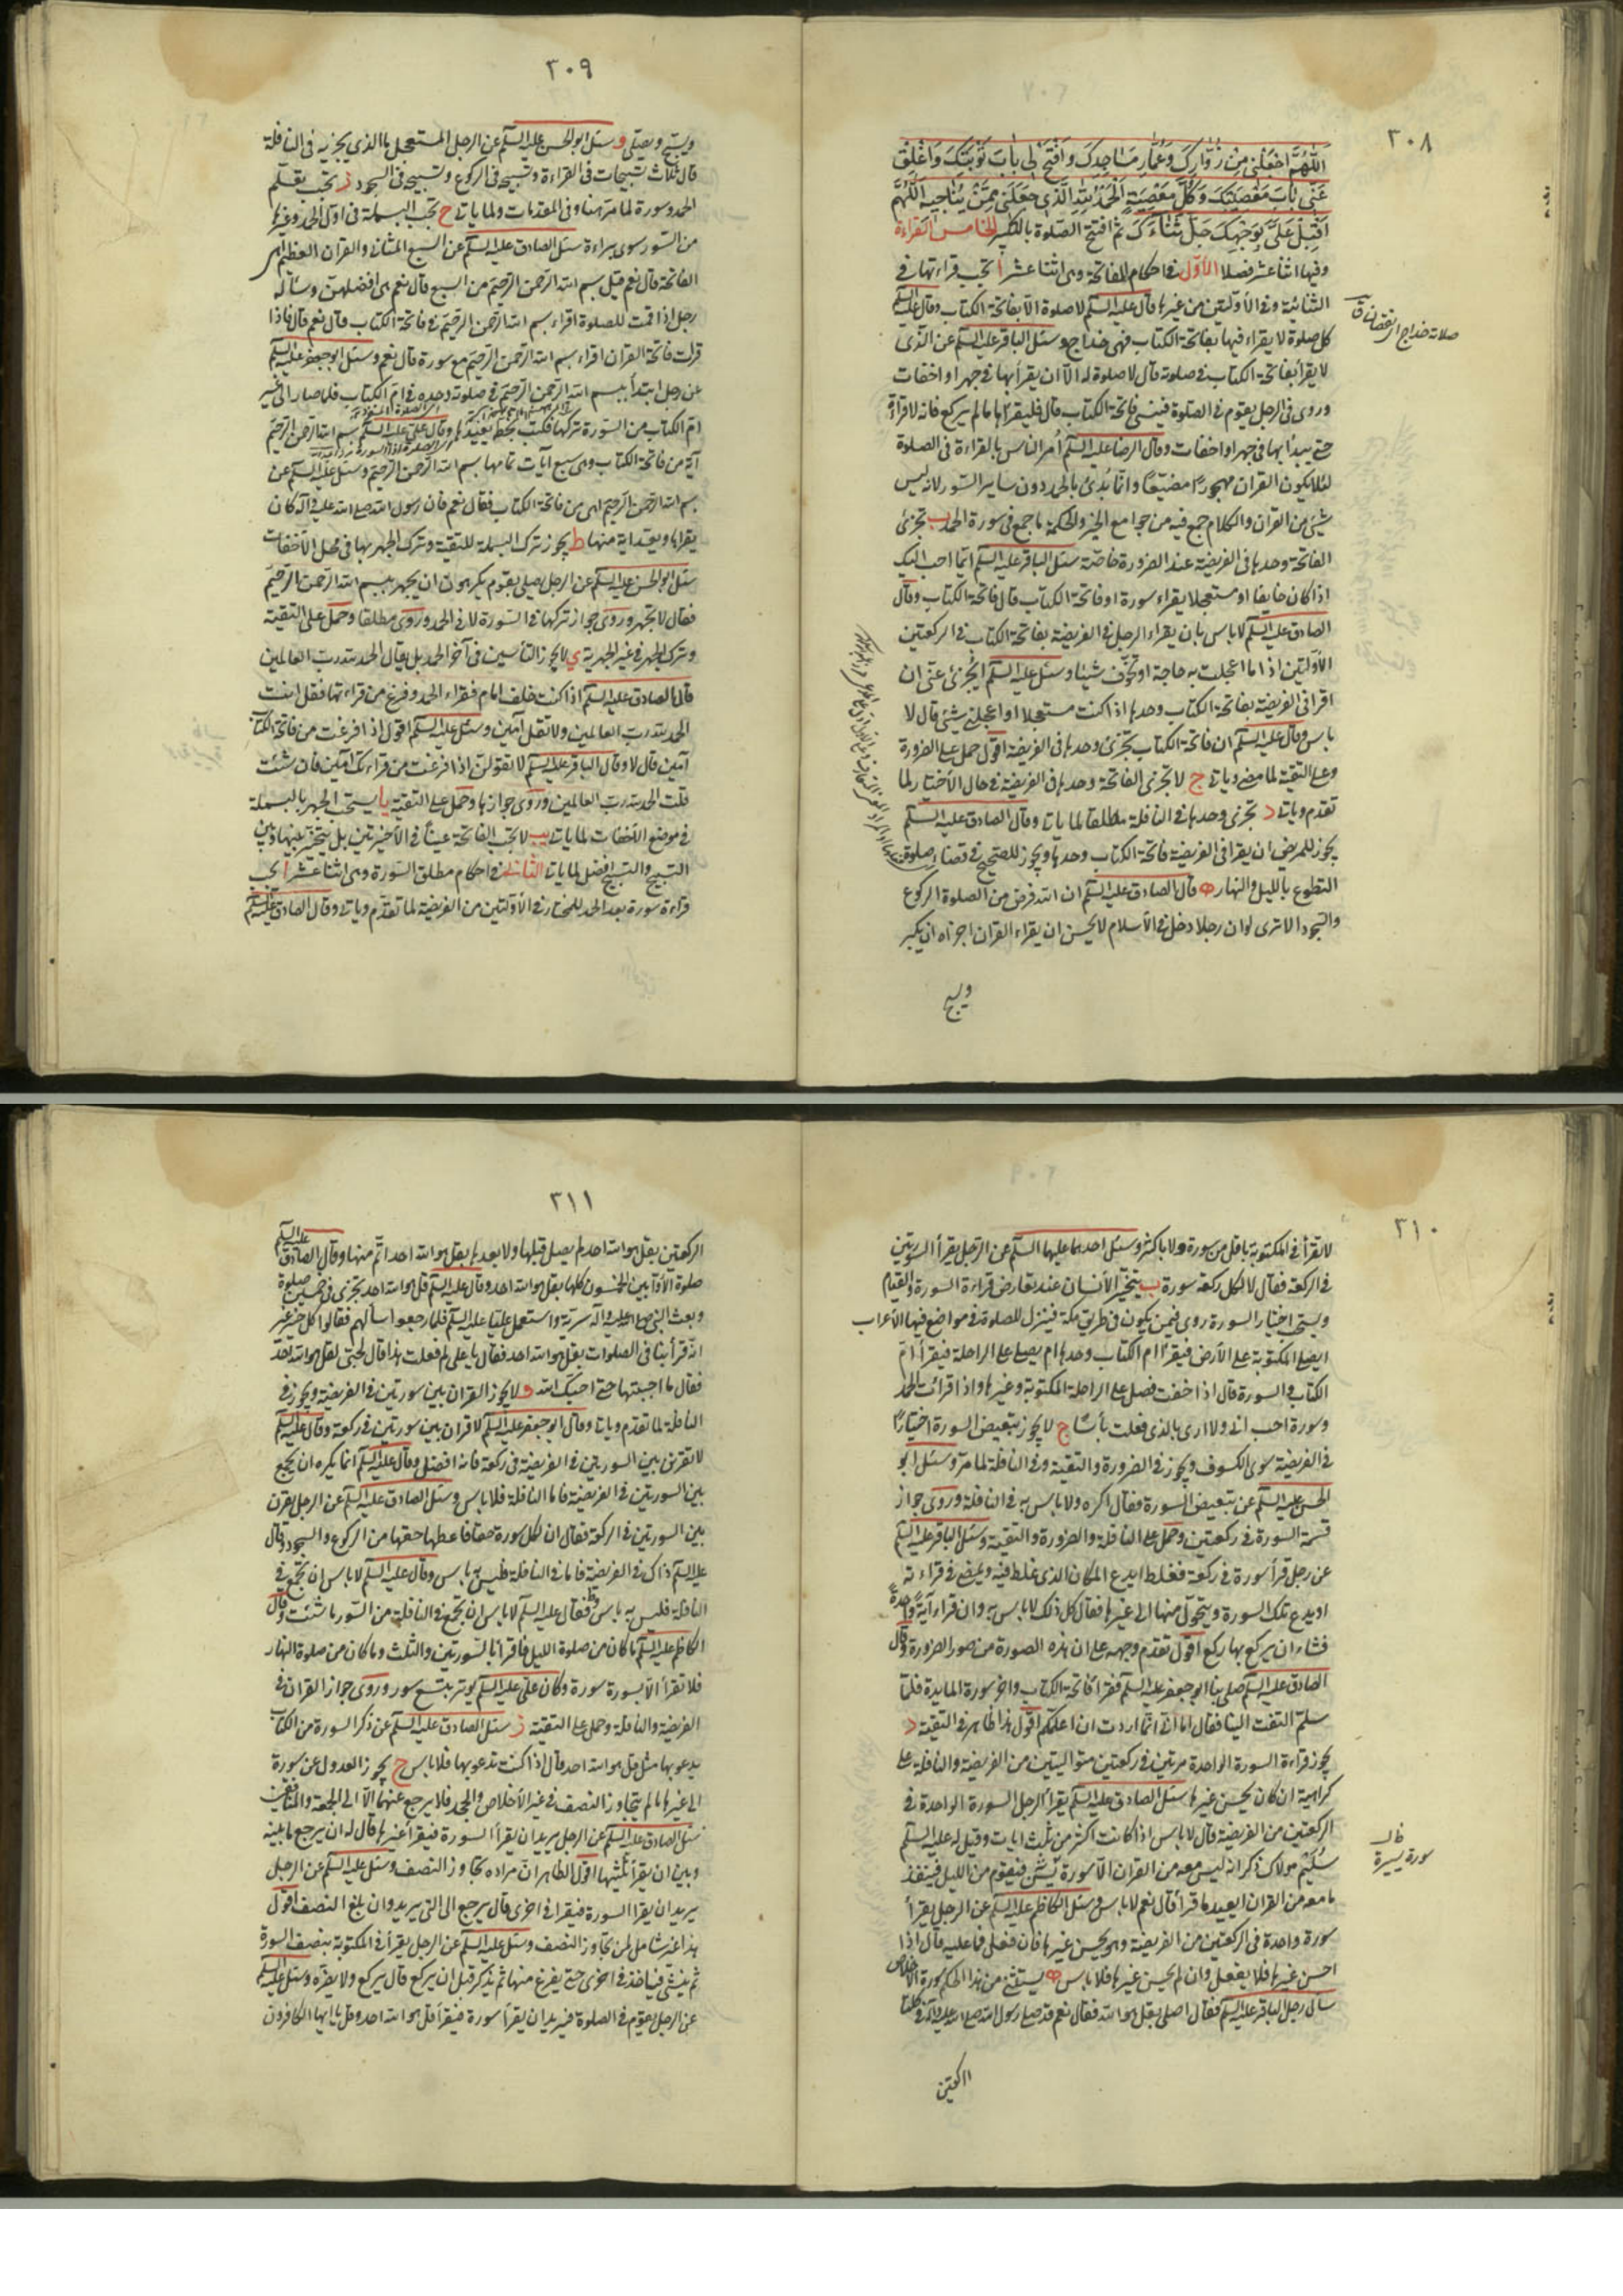 ٣٠٨
اَللّٰهُمَّ اجْعَلْنِي مِنْ زُوَّارِكَ وَعُمَّارِ مَسَاجِدِكَ وَافْتَحْ لِي بَابَ تَوْبَتِكَ وَاَغْلِقْ
عَنِّي بَابَ مَعْصِيَتِكَ وَكُلَّ مَعْصِيَةٍ اَلْحَمْدُ لِلّٰهِ الَّذِي جَعَلَنِي مِمَّنْ يُنَاجِيهِ اَللّٰهُمَّ
اَقْبِلْ عَلَيَّ بِوَجْهِكَ جَلَّ ثَنَاؤُكَ ثم افتح الصلوة بالتكبير الخامس القراءة
وفيها اثنا عشر فصلا الأول في احكام الفاتحة وهي اثنا عشر أ تجب قراءتها في
الثنائية وفي الأولتين من غيرها قال عليه السلم لا صلوة الا بفاتحة الكتاب وقال عليه السلم
كل صلوة لا يقراء فيها بفاتحة الكتاب فهي خداج وسئل الباقر عليه السلم عن الذي
لا يقرأ بفاتحة الكتاب في صلوته قال لا صلوة له الا ان يقرأ بها في جهر او اخفات
وروى في الرجل يقوم في الصلوة فينسى فاتحة الكتاب قال فليقرأها ما لم يركع فانه لا قراءة
حتى يبدأ بها في جهر او اخفات وقال الرضا عليه السلم أمر الناس بالقراءة في الصلوة
لئلا يكون القران مهجورًا مضيّعًا وانما بُدئ بالحمد دون ساير السور لانه ليس
شيئ من القران والكلام جمع فيه من جوامع الخير والحكمة ما جمع في سورة الحمد ب تجزئ
الفاتحة وحدها في الفريضة عند الضرورة خاصة سئل الباقر عليه السلم ايما احب اليك
اذا كان خايفا او مستعجلا يقراء سورة او فاتحة الكتاب قال فاتحة الكتاب وقال
الصادق عليه السلم لا باس بان يقراء الرجل في الفريضة بفاتحة الكتاب في الركعتين
الأولتين اذا ما اعجلت به حاجة او تخوّف شيئا وسئل عليه السلم ايجزئ عنّي ان
اقرا في الفريضة بفاتحة الكتاب وحدها اذا كنت مستعجلا او اعجلني شيئ قال لا
باس وقال عليه السلم ان فاتحة الكتاب تجزئ وحدها في الفريضة اقول حمل على الضرورة
وعلى التقية لما مضى وياتي ج لا تجزي الفاتحة وحدها في الفريضة في حال الاختيار لما
تقدم وياتي د تجزي وحدها في النافلة مطلقا لما ياتي وقال الصادق عليه السلم
يجوز للمريض ان يقرا في الفريضة فاتحة الكتاب وحدها ويجوز للصحيح في قضاء صلوة
التطوع بالليل والنهار ه وقال الصادق عليه السلم ان الله فرض من الصلوة الركوع
والسجود الا ترى لو ان رجلا دخل في الاسلام لا يحسن ان يقراء القران اجزأه ان يكبر
ويسبح
٣٠٩
ويسبح ويصلي و سئل ابو الحسن عليه السلم عن الرجل المستعجل ما الذي يجزيه في النافلة
قال ثلاث تسبيحات في القراءة وتسبيحة في الركوع وتسبيحة في السجود ز تجب تقديم
الحمد وسورة لما مر هنا وفي المقدمات ولما ياتي ح تجب البسملة في اول الحمد وغيرها
من السور سوى براءة سئل الصادق عليه السلم عن السبع المثاني والقران العظيم اهي
الفاتحة قال نعم قيل بسم الله الرحمن الرحيم من السبع قال نعم هي افضلهن وسأله
رجل اذا قمت للصلوة اقراء بسم الله الرحمن الرحيم في فاتحة الكتاب قال نعم قال فاذا
قرات فاتحة القران اقراء بسم الله الرحمن الرحيم مع سورة قال نعم وسئل ابو جعفر عليه السلم
عن رجل ابتدأ ببسم الله الرحمن الرحيم في صلوته وحده في ام الكتاب فلما صار الى غير
ام الكتاب من السورة تركها فكتب بخطه يعيدها وقال علي عليه السلم بسم الله الرحمن الرحيم
آية من فاتحة الكتاب وهي سبع آيات تمامها بسم الله الرحمن الرحيم وسئل عليه السلم عن
بسم الله الرحمن الرحيم اهي من فاتحة الكتاب فقال نعم فان رسول الله صلى الله عليه وآله كان
يقراها ويعد اية منها ط يجوز ترك البسملة للتقية وترك الجهر بها في محل الاخفات
سئل ابو الحسن عليه السلم عن الرجل يصلي بقوم يكرهون ان يجهر ببسم الله الرحمن الرحيم
فقال لا تجهر وروى جواز تركها في السورة لا في الحمد وروى مطلقا وحمل على التقية
وترك الجهر في غير الجهرية ي لا يجوز التأمين في آخر الحمد بل يقال الحمد لله رب العالمين
قال الصادق عليه السلم اذا كنت خلف امام فقراء الحمد وفرغ من قراءتها فقل انت
الحمد لله رب العالمين ولا تقل آمين وسئل عليه السلم اقول اذا فرغت من فاتحة الكتاب
آمين قال لا وقال الباقر عليه السلم لا تقولن اذا فرغت من قراءتك آمين فان شئت
قلت الحمد لله رب العالمين وروى جوازها وحمل على التقية يا يستحب الجهر بالبسملة
في موضع الاخفات لما ياتي يب لا تجب الفاتحة عينًا في الأخيرتين بل يتخير بينها وبين
التسبيح والتسبيح افضل لما ياتي الثاني في احكام مطلق السورة وهي اثنا عشر أ تجب
قراءة سورة بعد الحمد للمختار في الأولتين من الفريضة لما تقدم وياتي وقال الصادق عليه السلم
٣١٠
لا تقرأ في المكتوبة باقل من سورة ولا باكثر وسئل احدهما عليهما السلم عن الرجل يقرأ السورتين
في الركعة فقال لا لكل ركعة سورة ب يتخيّر الأنسان عند تعارض قراءة السورة والقيام
ويستحب اختيار السورة روى فيمن يكون في طريق مكة فينزل للصلوة في مواضع فيها الأعراب
ايصلي المكتوبة على الأرض فيقرأ ام الكتاب وحدها ام يصلي على الراحلة فيقرأ امّ
الكتاب والسورة قال اذا خفت فصل على الراحلة المكتوبة وغيرها واذا قرأت الحمد
وسورة احب الي ولا ارى بالذي فعلت بأسًا ج لا يجوز تبعيض السورة اختيارًا
في الفريضة سوى الكسوف ويجوز في الضرورة والتقية وفي النافلة لما مر وسئل ابو
الحسن عليه السلم عن تبعيض السورة فقال اكره ولا باس به في النافلة وروى جواز
قسمة السورة في ركعتين وحمل على النافلة والضرورة والتقية وسئل الباقر عليه السلم
عن رجل قرأ سورة في ركعة فغلط ايدع المكان الذي غلط فيه ويمضي في قراءته
او يدع تلك السورة ويتحول منها الى غيرها فقال كل ذلك لا باس به وان قراء آية واحدة
فشاء ان يركع بها ركع اقول تقدم وجهه على ان هذه الصورة من صور الضرورة وقال
الصادق عليه السلم صلى بنا ابو جعفر عليه السلم فقرأ فاتحة الكتاب واخر سورة المايدة فلما
سلّم التفت الينا فقال اما اني انما اردت ان اعلمكم اقول هذا ظاهر في التقية د
يجوز قراءة السورة الواحدة مرتين في ركعتين متواليتين من الفريضة والنافلة على
كراهية ان كان يحسن غيرها سئل الصادق عليه السلم يقرأ الرجل السورة الواحدة في
الركعتين من الفريضة قال لا باس اذا كانت اكثر من ثلث ايات وقيل له عليه السلم
سُلَيْم مولاك ذكر انه ليس معه من القران الا سورة يٰسٓ فيقوم من الليل فينفد
ما معه من القران ايعيد ما قرأ قال نعم لا باس وسئل الكاظم عليه السلم عن الرجل يقرأ
سورة واحدة في الركعتين من الفريضة وهو يحسن غيرها فان فعل فما عليه قال اذا
احسن غيرها فلا يفعل وان لم يحسن غيرها فلا باس ه يستثنى من هذا الحكم سورة الاخلاص
سأل رجل الباقر عليه السلم فقال اصلي بقل هو الله فقال نعم قد صلى رسول الله صلى الله عليه وآله في كلتا
٣١١
الركعتين بقل هو الله احد لم يصل قبلها ولا بعدها بقل هو الله احد اتمّ منها وقال الصادق عليه السلم
صلوة الأوّابين الخمسون كلها بقل هو الله احد وقال عليه السلم قل هو الله احد تجزي في خمسين صلوة
وبعث النبي صلى الله عليه وآله سرية واستعمل عليّا عليه السلم فلما رجعوا سألهم فقالوا كل خير غير
انّه قرأ بنا في الصلوات بقل هو الله احد فقال يا علي لم فعلت هذا قال لحبي لقل هو الله احد
فقال ما احببتها حتى احبك الله و لا يجوز القران بين سورتين في الفريضة ويجوز في
النافلة لما تقدم وياتي وقال ابو جعفر عليه السلم لا قران بين سورتين في ركعة وقال عليه السلم
لا تقرنن بين السورتين في الفريضة في ركعة فانه افضل وقال عليه السلم انما يكره ان يجمع
بين السورتين في الفريضة فاما النافلة فلا باس وسئل الصادق عليه السلم عن الرجل يقرن
بين السورتين في الركعة فقال ان لكل سورة حقا فاعطها حقها من الركوع والسجود وقال
عليه السلم ذاك في الفريضة فاما في النافلة فليس به باس وقال عليه السلم لا باس ان تجمع في
النافلة من السور ما شئت وقال
الكاظم عليه السلم ما كان من صلوة الليل فاقرأ بالسورتين والثلث وما كان من صلوة النهار
فلا تقرأ الا بسورة سورة وكان علي عليه السلم يوتر بتسع سور وروى جواز القران في
الفريضة والنافلة وحمل على التقية ز سئل الصادق عليه السلم عن ذكر السورة من الكتاب
يدعو بها مثل قل هو الله احد قال اذا كنت تدعو بها فلا باس ح يجوز العدول عن سورة
الى غيرها ما لم يتجاوز النصف في غير الأخلاص والجحد فلا يرجع عنهما الا الى الجمعة والمنافقين
سئل الصادق عليه السلم عن الرجل يريد ان يقرأ السورة فيقرأ غيرها قال له ان يرجع ما بينه
وبين ان يقرأ ثلثيها اقول الظاهر ان مراده تجاوز النصف وسئل عليه السلم عن الرجل
يريد ان يقرا السورة فيقرا في اخرى قال يرجع الى التي يريد وان بلغ النصف اقول
هذا غير شامل لمن تجاوز النصف وسئل عليه السلم عن الرجل يقرأ في المكتوبة بنصف السورة
ثم ينسى فياخذ في اخرى حتى يفرغ منها ثم يذكر قبل ان يركع قال يركع ولا يضره وسئل عليه السلم
عن الرجل يقوم في الصلوة فيريد ان يقرأ سورة فيقرأ قل هو الله احد وقل يا ايها الكافرون